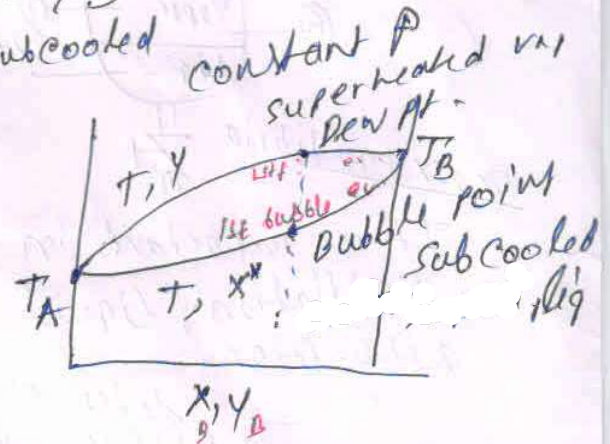 ubcooled
constant P
superheated va
Dew Pt.
T, Y
TB
1st bubble
Bubble point
subcooled
liq
TA
T, X
XB, YB